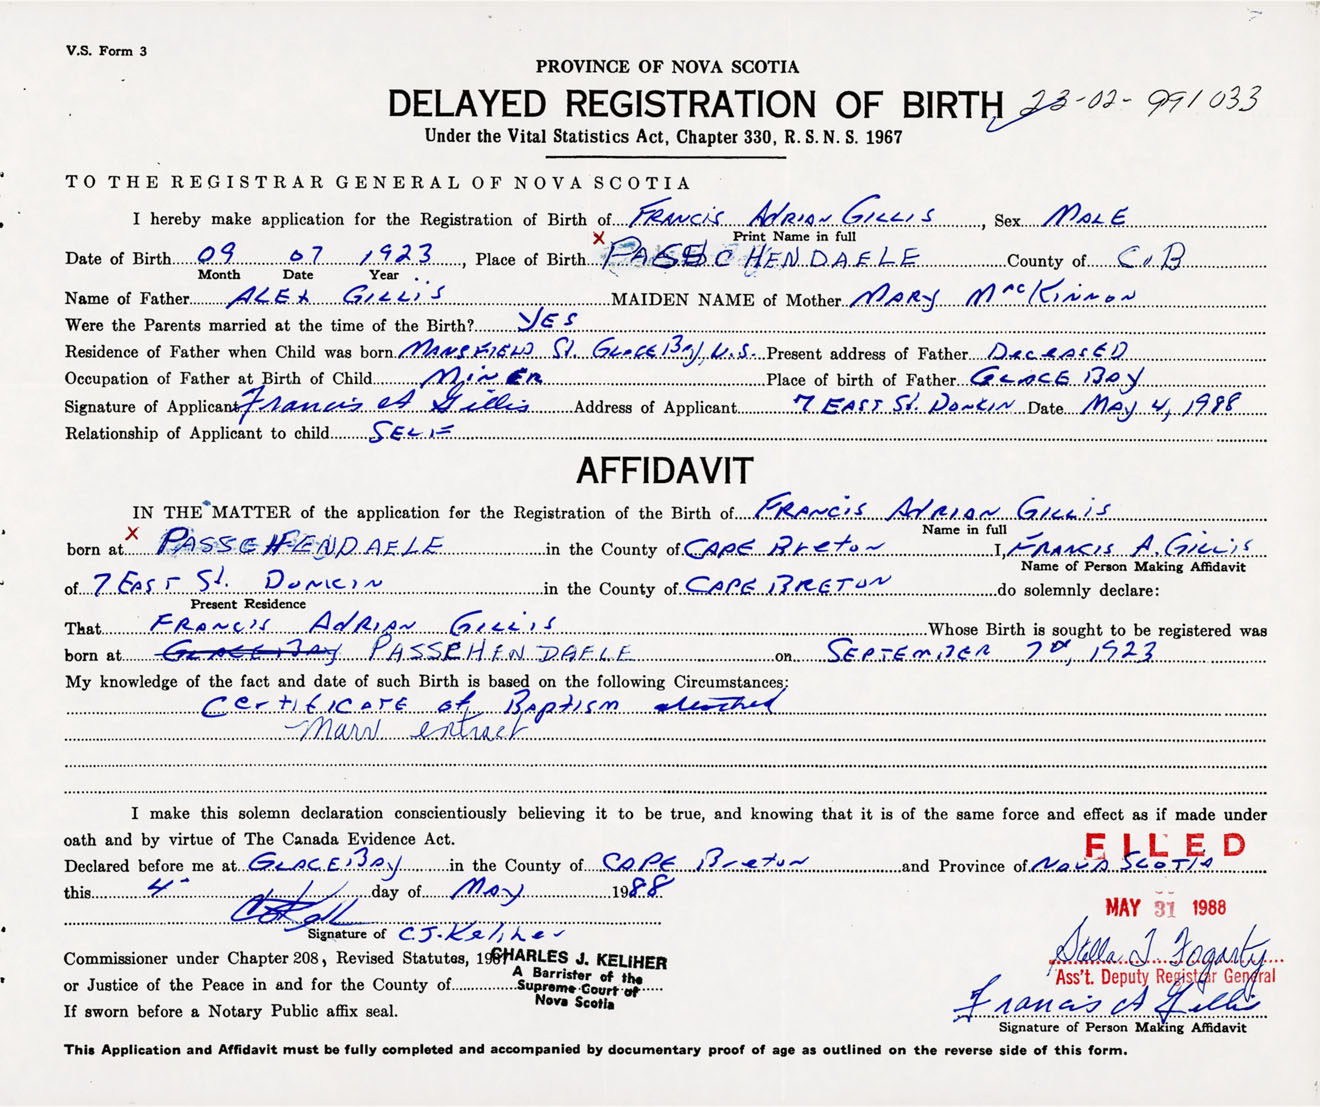 V.S. Form 3
PROVINCE OF NOVA SCOTIA
DELAYED REGISTRATION OF BIRTH 23-02-991033
Under the Vital Statistics Act, Chapter 330, R. S. N. S. 1967
TO THE REGISTRAR GENERAL OF NOVA SCOTIA
I hereby make application for the Registration of Birth of FRANCIS ADRIAN GILLIS, Sex MALE
Print Name in full
Date of Birth 09 07 1923, Place of Birth X PASSCHENDAELE County of C.B
Month Date Year
Name of Father ALEX GILLIS MAIDEN NAME of Mother MARY MacKINNON
Were the Parents married at the time of the Birth? YES
Residence of Father when Child was born MANSFIELD St. GLACE BAY, N.S. Present address of Father DECEASED
Occupation of Father at Birth of Child MINER Place of birth of Father GLACE BAY
Signature of Applicant Francis A Gillis Address of Applicant 7 EAST St. DONKIN Date MAY 4, 1988
Relationship of Applicant to child SELF
AFFIDAVIT
IN THE MATTER of the application for the Registration of the Birth of FRANCIS ADRIAN GILLIS
Name in full
born at X PASSEHENDAELE in the County of CAPE Breton I, FRANCIS A. GILLIS
Name of Person Making Affidavit
of 7 EAST St. DONKIN in the County of CAPE BRETON do solemnly declare:
Present Residence
That FRANCIS ADRIAN GILLIS Whose Birth is sought to be registered was
born at GLACE BAY PASSEHENDAELE on SEPTEMBER 7th, 1923
My knowledge of the fact and date of such Birth is based on the following Circumstances:
Certificate of Baptism attached
Marr extract
I make this solemn declaration conscientiously believing it to be true, and knowing that it is of the same force and effect as if made under
oath and by virtue of The Canada Evidence Act.
FILED
Declared before me at GLACE BAY in the County of CAPE Breton and Province of NOVA SCOTIA
this 4 day of May 1988
MAY 31 1988
Signature of C.J. Keliher
Stella T Fogarty
Commissioner under Chapter 208, Revised Statutes, 1967
CHARLES J. KELIHER
A Barrister of the
Supreme Court of
Nova Scotia
Ass't. Deputy Registrar General
or Justice of the Peace in and for the County of
Francis A Gillis
If sworn before a Notary Public affix seal.
Signature of Person Making Affidavit
This Application and Affidavit must be fully completed and accompanied by documentary proof of age as outlined on the reverse side of this form.